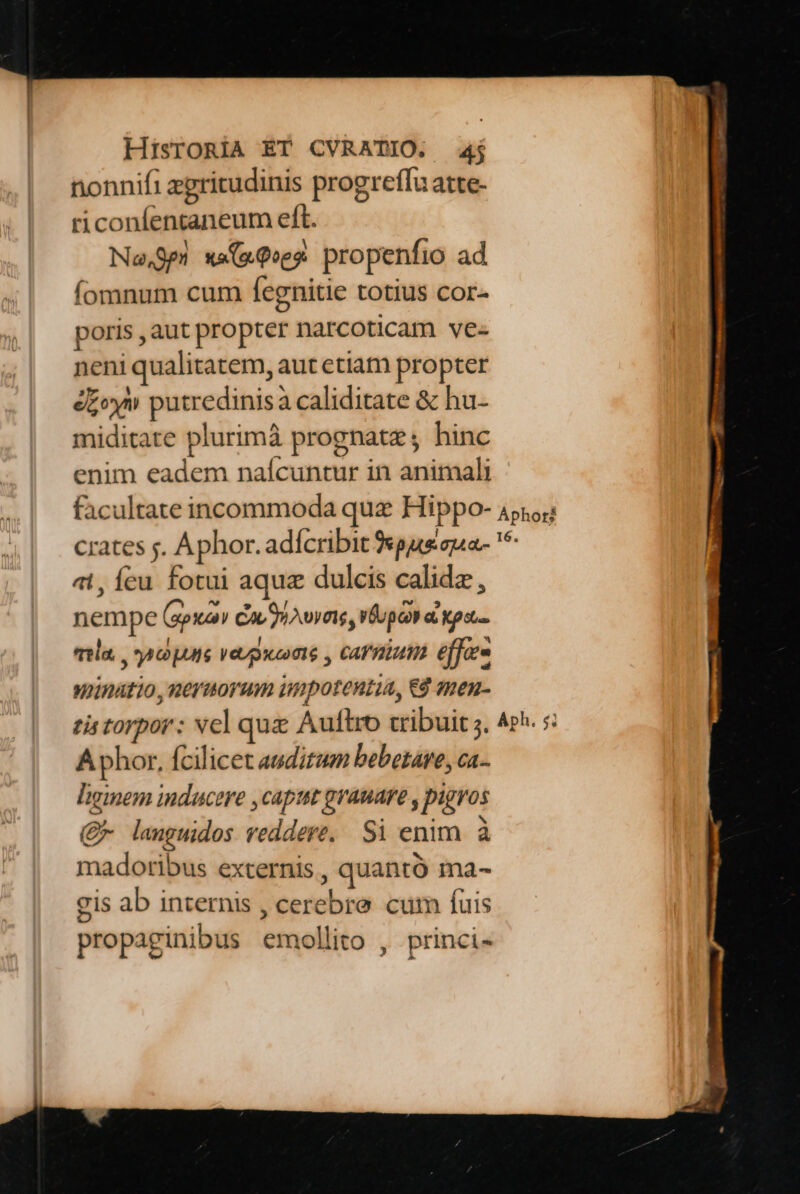 HISTORIA ET CVRATIO. 45
nonnisi ægritudinis progreſſu atte-
ri conſentaneum eſt.
Νωθρὴ καταφορὴ propenſio ad
ſomnum cum ſegnitie totius cor-
poris, aut propter narcoticam ve-
neni qualitatem, aut etiam propter
ἐξοχὴν putredinis à caliditate & hu-
miditate plurimâ prognatæ; hinc
enim eadem naſcuntur in animali
facultate incommoda quæ Hippo- Aphor;
crates 5. Aphor. adſcribit 16.
ſeu fotui aquæ dulcis calidæ,
nempe σαρκῶν ἐκθήλυνσις, νεύρων ἀκρα-
τεία, γνώμης νάρκωσις, carnium effœ-
minatio, neruorum impotentia, & men-
tis torpor: vel quæ Auſtro tribuit 3. Aph. 5:
Aphor. ſcilicet auditum hebetare, ca-
liginem inducere, caput grauare, pigros
& languidos reddere. Si enim à
madoribus externis, quantò ma-
gis ab internis, cerebro cum ſuis
propaginibus emollito, princi-